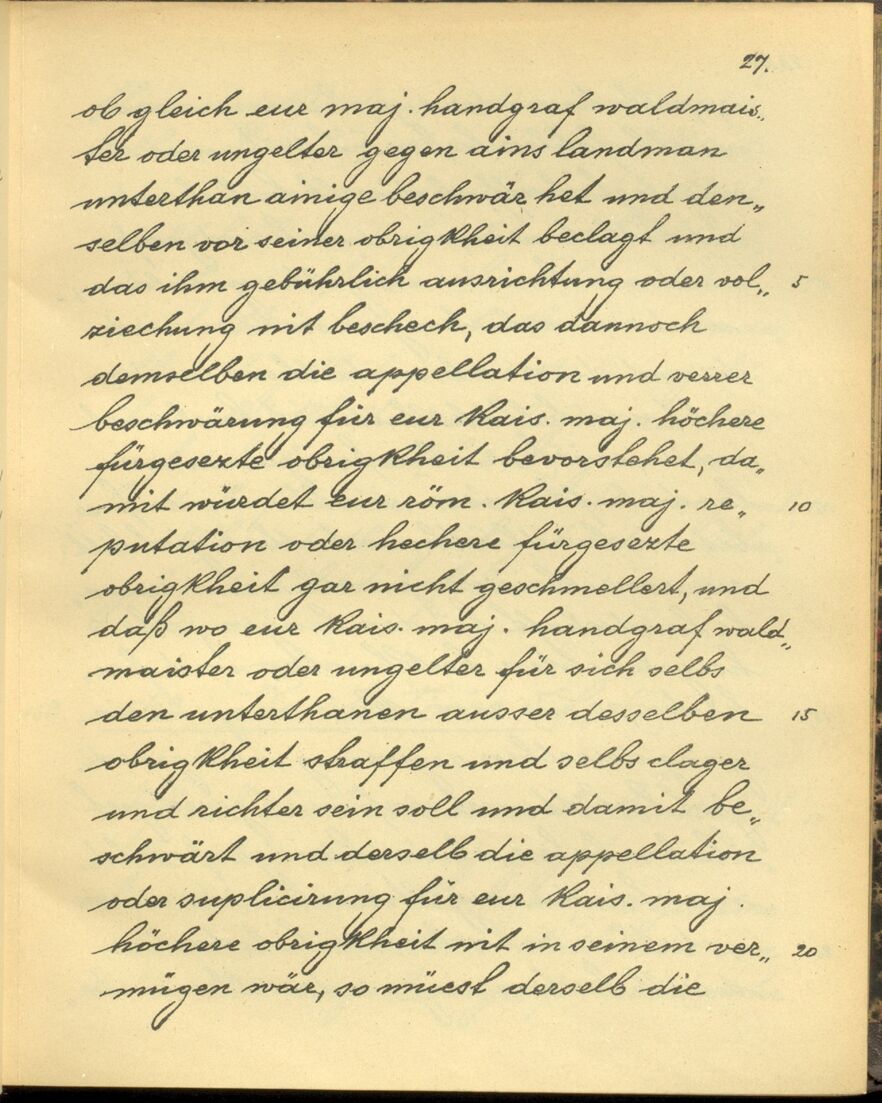 27.
ob gleich eur maj. handgraf waldmais„
ter oder ungelter gegen ains landman
unterthan ainige beschwär het und den„
selben vor seiner obrigkheit beclagt und
das ihm gebührlich ausrichtung oder vol„ 5
ziechung nit beschech, das dannoch
demselben die appellation und verrer
beschwärung für eur kais. maj. höchere
fürgesezte obrigkheit bevorstehet, da„
mit würdet eur röm. kais. maj. re„ 10
putation oder hechere fürgesezte
obrigkheit gar nicht geschmellert, und
daß wo eur kais. maj. handgraf wald„
maister oder ungelter für sich selbs
den unterthanen ausser desselben 15
obrigkheit straffen und selbs clager
und richter sein soll und damit be„
schwärt und derselb die appellation
oder suplicirung für eur kais. maj.
höchere obrigkheit nit in seinem ver„ 20
mügen wär, so müest derselb die